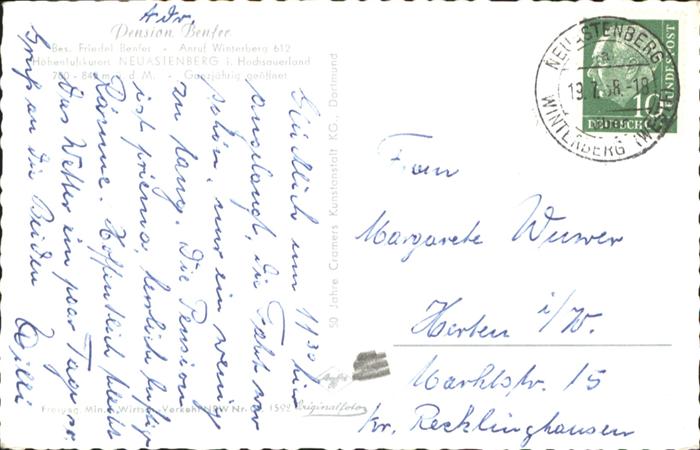 Adr.
Pension Benfer
Bes. Friedel Benfer - Anruf Winterberg 612
Höhenluftkurort NEUASTENBERG i. Hochsauerland
780 - 84 m ü. d. M. - Ganzjährig geöffnet
Glücklich um 11³⁰ hier
angelangt, die Fahrt war
schön, nur ein wenig
zu lang. Die Pension
ist prima, herrlich luftige
Räume. Hoffentlich bleibt
das Wetter ein paar Tage so.
Gruß an die Beiden Willi
Freigeg. Min. f. Wirtsch. Verkehr NRW Nr. 1592
Originalfoto
50 Jahre Cramers Kunstanstalt KG., Dortmund
NEUASTENBERG
19.7.58.-18
über
WINTERBERG (WESTF)
10
DEUTSCHE
BUNDESPOST
Frau
Margarete Wuwer
Herten i/W.
Marktstr. 15
Kr. Recklinghausen